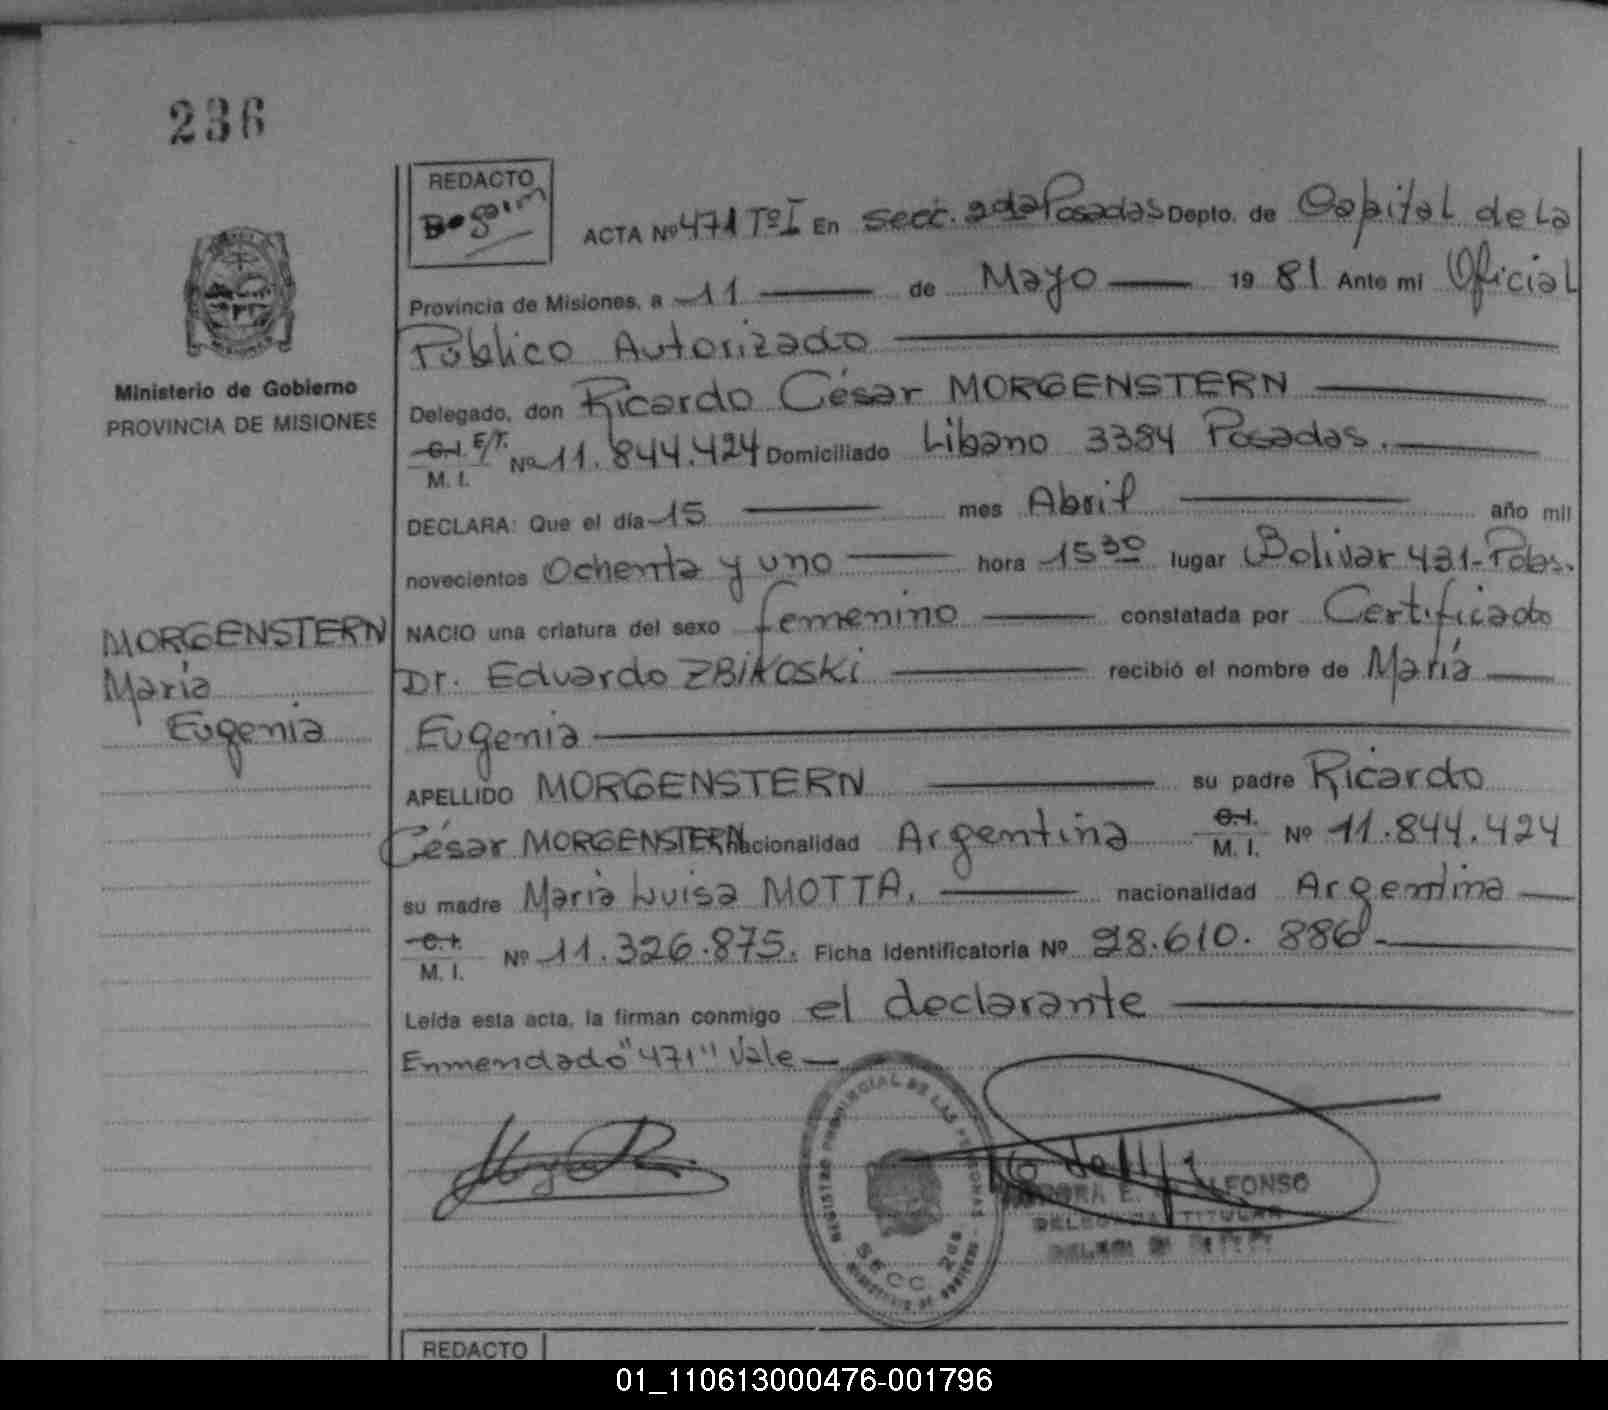 236
REDACTO
ACTA Nº 471 Tº I En secc. 2da Posadas Depto. de Capital de la
Provincia de Misiones, a 11 de Mayo 19 81 Ante mi Oficial
Público Autorizado
Ministerio de Gobierno
PROVINCIA DE MISIONES
Delegado, don Ricardo César MORGENSTERN
C.I. E/T. M. I. Nº 11.844.424 Domiciliado Libano 3384 Posadas.
DECLARA: Que el día 15 mes Abril año mil
novecientos Ochenta y uno hora 15 30 lugar Bolivar 431-Pdas.
NACIO una criatura del sexo femenino constatada por Certificado
Dr. Eduardo ZBIKOSKi recibió el nombre de María
Eugenia
MORGENSTERN
María
Eugenia
APELLIDO MORGENSTERN su padre Ricardo
César MORGENSTERN nacionalidad Argentina C.I. M. I. Nº 11.844.424
su madre María Luisa MOTTA. nacionalidad Argentina
C.I. M. I. Nº 11.326.875. Ficha Identificatoria Nº 28.610.886-
Leída esta acta, la firman conmigo el declarante
Enmendado "471" Vale
REGISTRO PROVINCIAL DE LAS PERSONAS
SECC 2da
E. ALFONSO
DELEGADA TITULAR
REDACTO
01_110613000476-001796